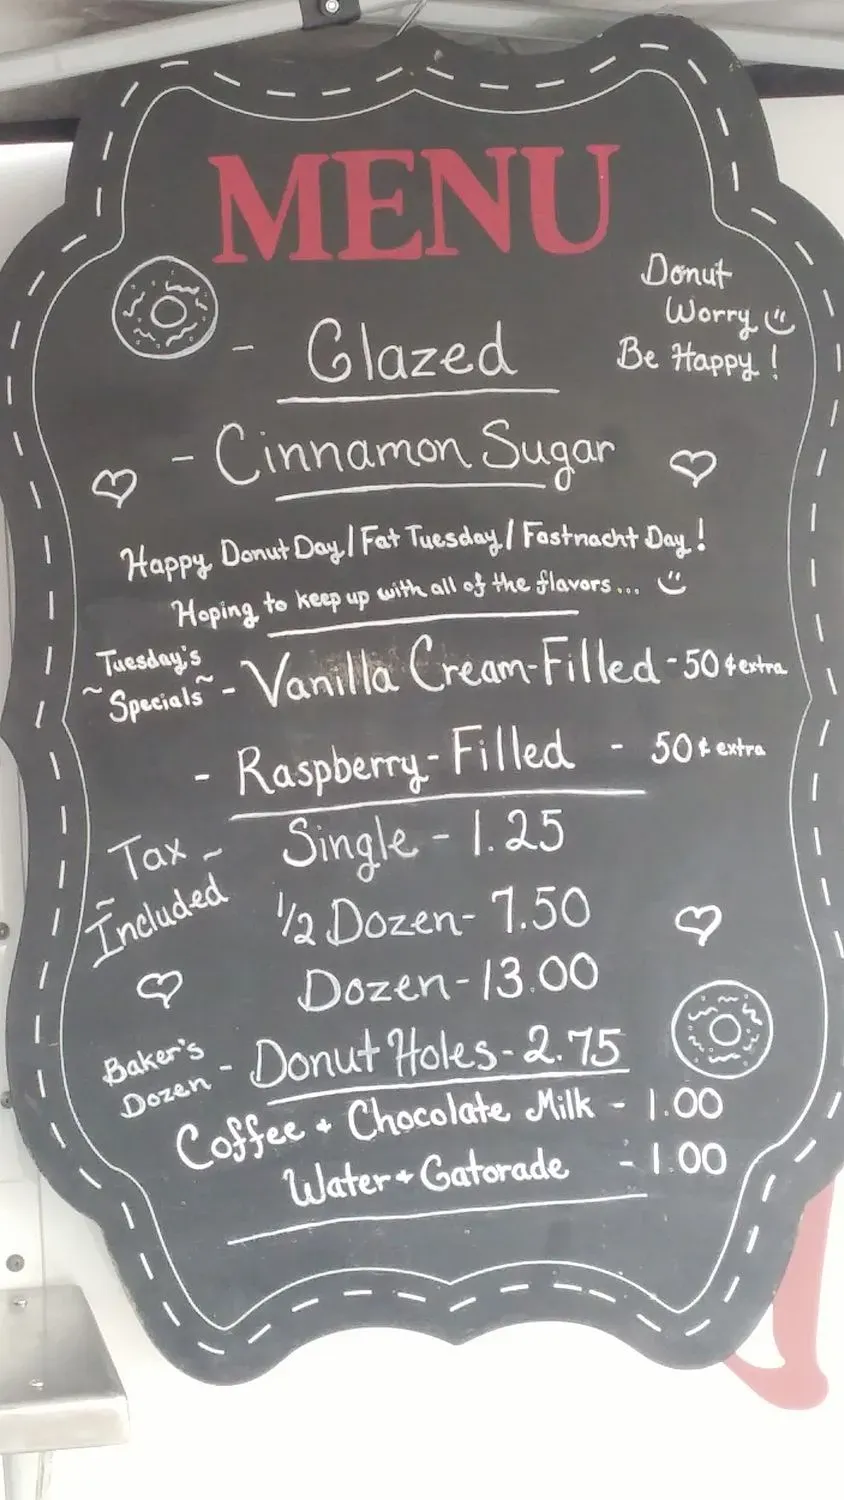 MENU
Donut
Worry
Be Happy!
- Glazed
- Cinnamon Sugar
Happy Donut Day/Fat Tuesday/Fastnacht Day!
Hoping to keep up with all of the flavors...
Tuesday's
~ Specials ~
- Vanilla Cream-Filled - 50¢ extra
- Raspberry-Filled - 50¢ extra
~ Tax ~
Included
Single - 1.25
1/2 Dozen - 7.50
Dozen - 13.00
Baker's
Dozen
- Donut Holes - 2.75
Coffee + Chocolate Milk - 1.00
Water + Gatorade - 1.00